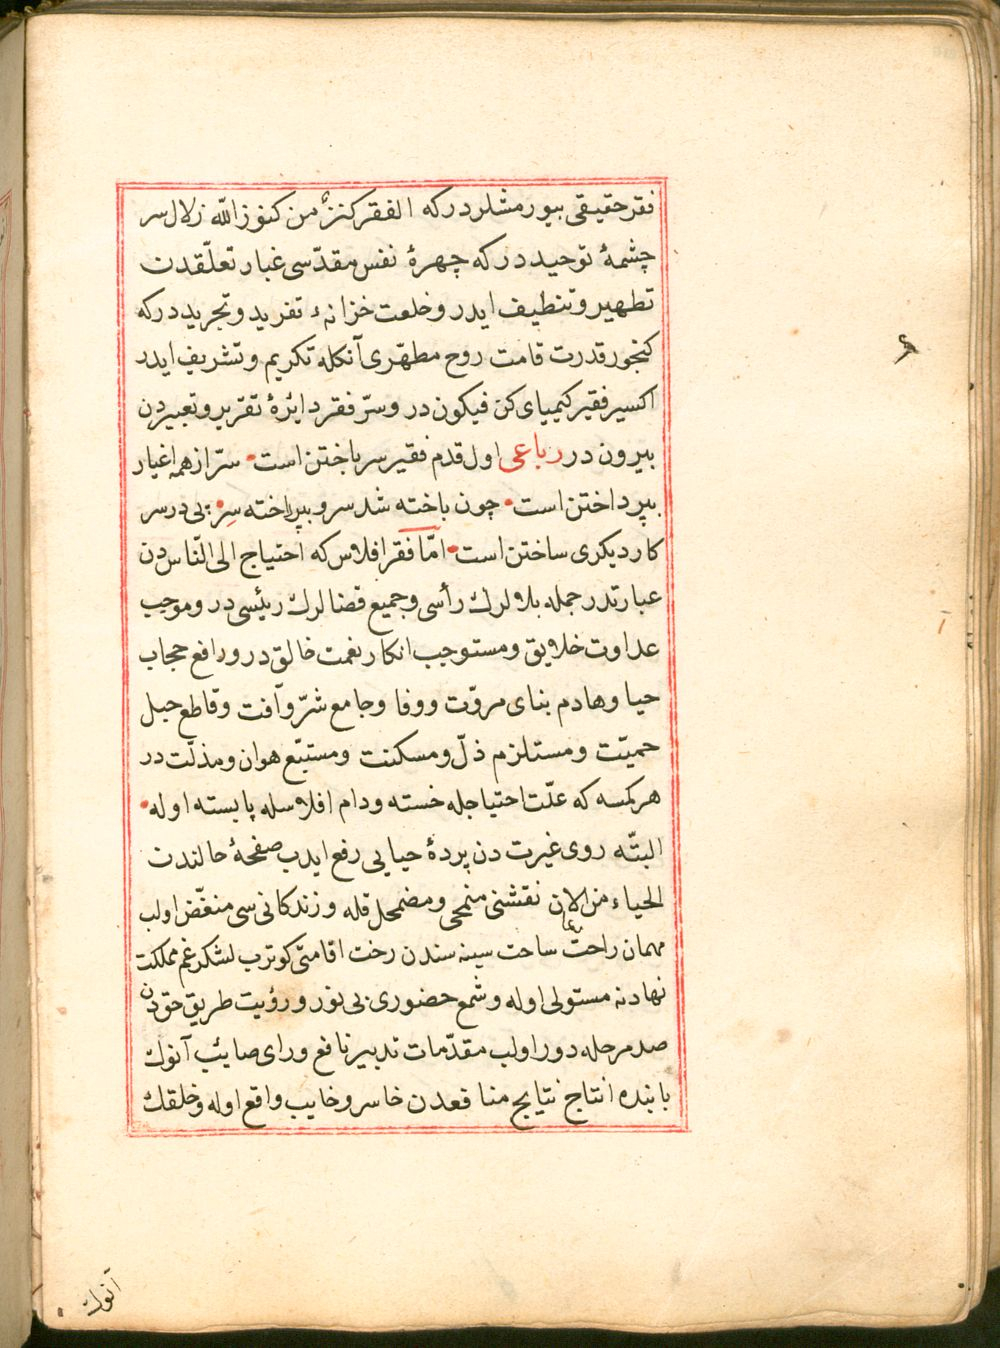 فقر حقیقی بیورمشلردر که الفقر کنز من کنوز الله زلال سر
چشمهٔ توحیددر که چهرهٔ نفس مقدّسی غبار تعلّقدن
تطهیر و تنظیف ایدر و خلعت خزانهٔ تفرید و تجریددر که
کنجور قدرت قامت روح مطهّری آنکله تکریم و تشریف ایدر
اکسیر فقیر کیمیای کن فیکون در و سرّ فقر دایرهٔ تقریر و تعبیردن
بیروندر رباعی اول قدم فقیر سر باختن است سرّ از همه اغیار
بپرداختن است چون باخته شد سر و بپرداخته سِر بی درد سر
کار دیکری ساختن است امّا فقر افلاس که احتیاج الی النّاس دن
عبارتدر جمله بلالرك رأسی و جمیع قضالرك رئیسی در و موجب
عداوت خلایق و مستوجب انکار نعمت خالق در و رافع حجاب
حیا و هادم بنای مروّت و وفا و جامع شرّ و آفت و قاطع حبل
حمیّت و مستلزم ذلّ و مسکنت و مستتبّع هوان و مذلّت در
هر کمسه که علّت احتیاجله خسته و دام افلاسله پابسته اوله
البتّه روی غیرت دن پردهٔ حیایی رفع ایدب صفحهٔ حالندن
الحیاء من الایمان نقشنی منمحی و مضمحل قله و زندکانی سی منغّض اولب
مهمان راحت ساحت سینه سندن رخت اقامتی کوترب لشکر غم مملکت
نهادنه مستولی اوله و شمع حضوری بی نور و رؤیت طریق حق دن
صد مرحله دور اولب مقدّمات تدبیر نافع و رای صایب آنوك
یاننده انتاج نتایج منافعدن خاسر و خایب واقع اوله و خلقك
آنوك